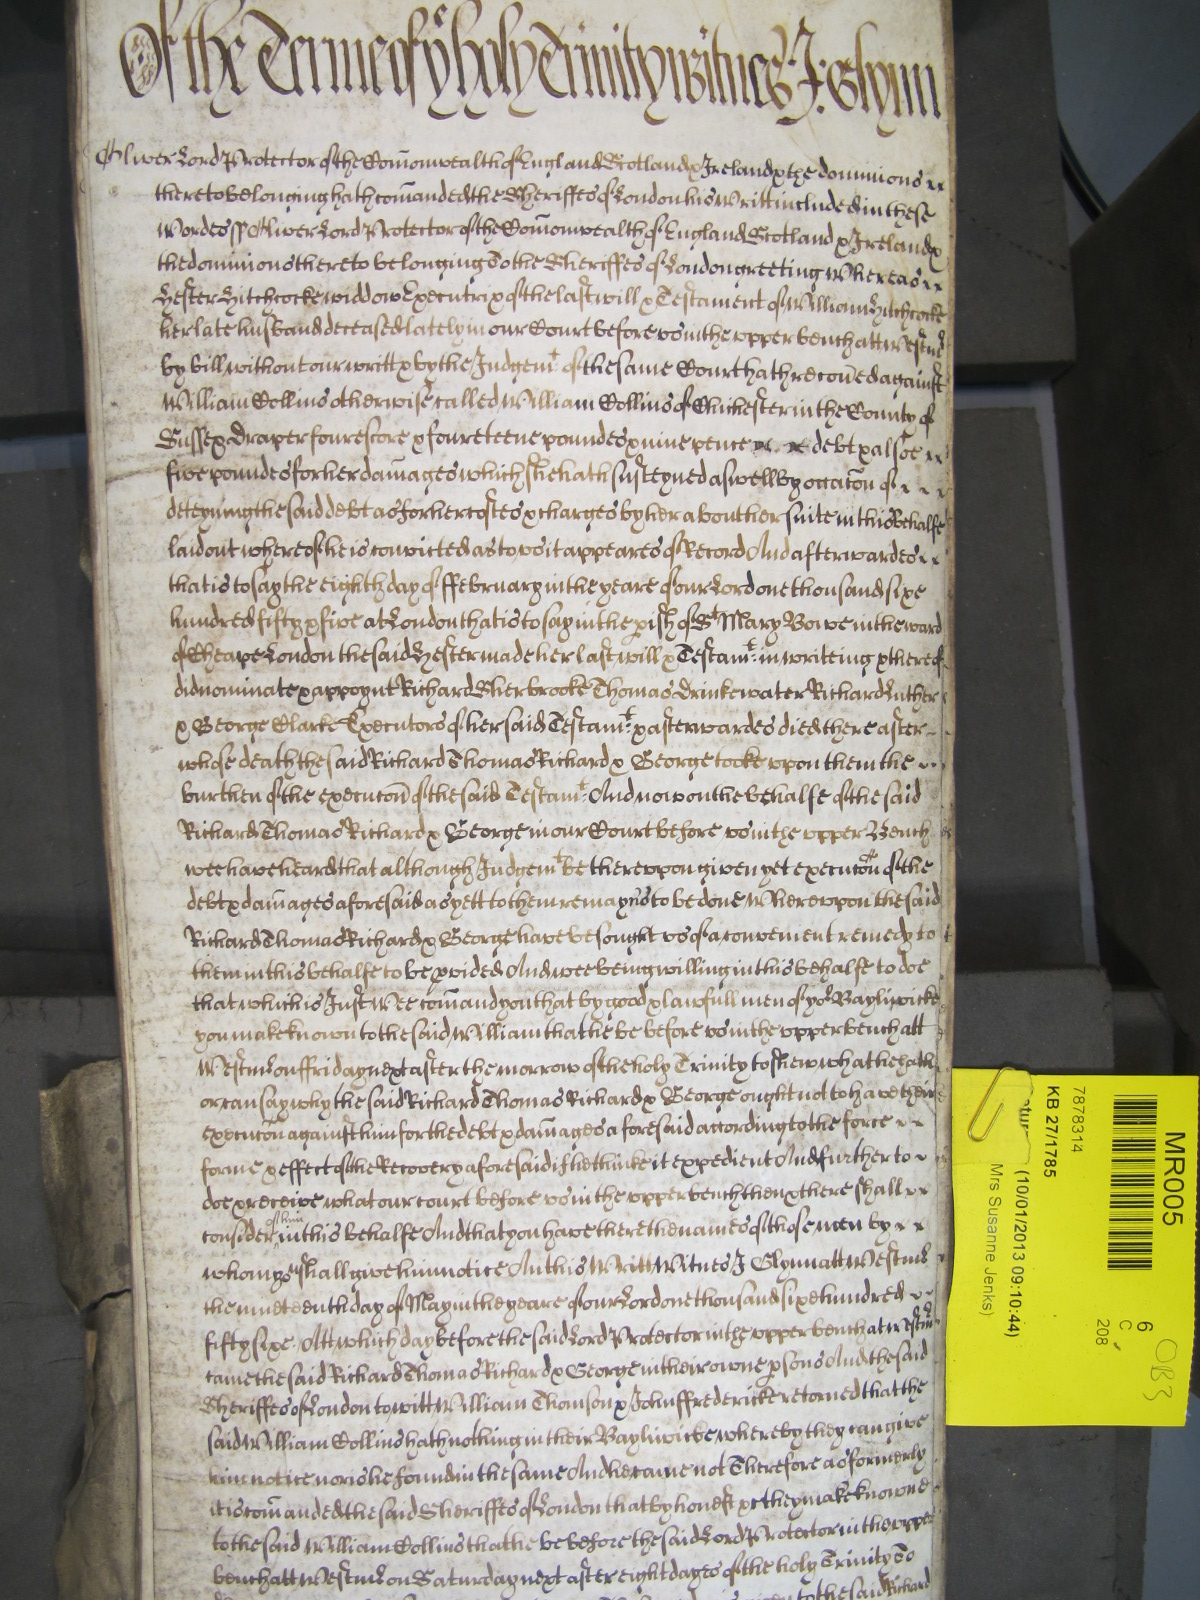 Of the Terme of ye holy Trinity witnes J: Glynn
Oliver Lord Protector of the Com̄onwealth of England Scotland & Ireland & the dominions
thereto belonging hath com̄anded the Sheriffes of London his writt included in these
wordes ss Oliver Lord Protector of the Com̄onwealth of England Scotland & Ireland &
the dominions thereto belonging To the Sheriffes of London greeting Whereas
Hester Hitchcocke widdow Executrix of the last will & Testament of William Hitchcocke
her late husband deceased lately in our Court before us in the upper bench att Westmr
by bill without our writt & by the Judgemt of the same Court hath recoūed against
William Collins otherwise called William Collins of Chichester in the County of
Sussex Draper fourescore & foureteene poundes & nine pence debt & alsoe
five poundes for her dam̄ages which shee hath susteyned aswell by occac̄on of
deteyning the said debt as for her costes & charges by her about her suite in this behalfe
laid out whereof he is convicted as to us it appeares of Record And afterwardes
that is to say the eighth day of ffebruary in the yeare of our Lord one thousand sixe
hundred fifty & five at London that is to say in the pish of St Mary Bowe in the ward
of Cheape London the said Hester made her last will & Testamt: in writeing & thereof
did nominate & appoynt Richard Sherbrooke Thomas Drinkewater Richard Luther
& George Clarke Executors of her said Testamt: & afterwardes died there after
whose death the said Richard Thomas Richard & George tooke upon them the
burthen of the execuc̄on of the said Testamt: And now on the behalfe of the said
Richard Thomas Richard & George in our Court before us in the upper Bench
wee have heard that although Judgemt be thereupon given yet execuc̄on of the
debt & dam̄ages aforesaid as yett to them remaynes to be done Whereupon the said
Richard Thomas Richard & George have besought us of a convenient remedy to
them in this behalfe to be pvided And wee being willing in this behalfe to doe
that which is Just Wee com̄and you that by good & lawfull men of yor Bayliwicke
you make knowne to the said William that he be before us in the upper bench att
Westmr on ffriday next after the morrow of the holy Trinity to shew what he hath
or can say why the said Richard Thomas Richard & George ought not to have their
execuc̄on against him for the debt & dam̄ages aforesaid according to the force
forme & effect of the Recovery aforesaid if he thinke it expedient And further to
doe & receive what our court before us in the upper bench then & there shall
consider of him in this behalfe And that you have there the names of those men by
whom you shall give him notice And this Writt Witnes J Glynn att Westmr
the nineteenth day of May in the yeare of our Lord one thousand sixe hundred
fifty sixe. Att which day before the said Lord Protector in the upper bench at Westmr
came the said Richard Thomas Richard & George in their owne psons And the said
Sheriffes of London to witt William Thomson & John ffredericke retorned that the
said William Collins hath nothing in their Bayliwicke whereby they can give
him notice nor is he found in the same And he came not Therefore as formerly
it is com̄anded the said Sheriffes of London that by honest &c they make knowne
to the said William Collins that he be before the said Lord Protector in the upper
bench att Westmr on Saturday next after eight dayes of the holy Trinity To
to the said Richard
MR005
6
C
208
OB3
7878314
KB 27/1785
(10/01/2013 09:10:44)
Mrs Susanne Jenks)